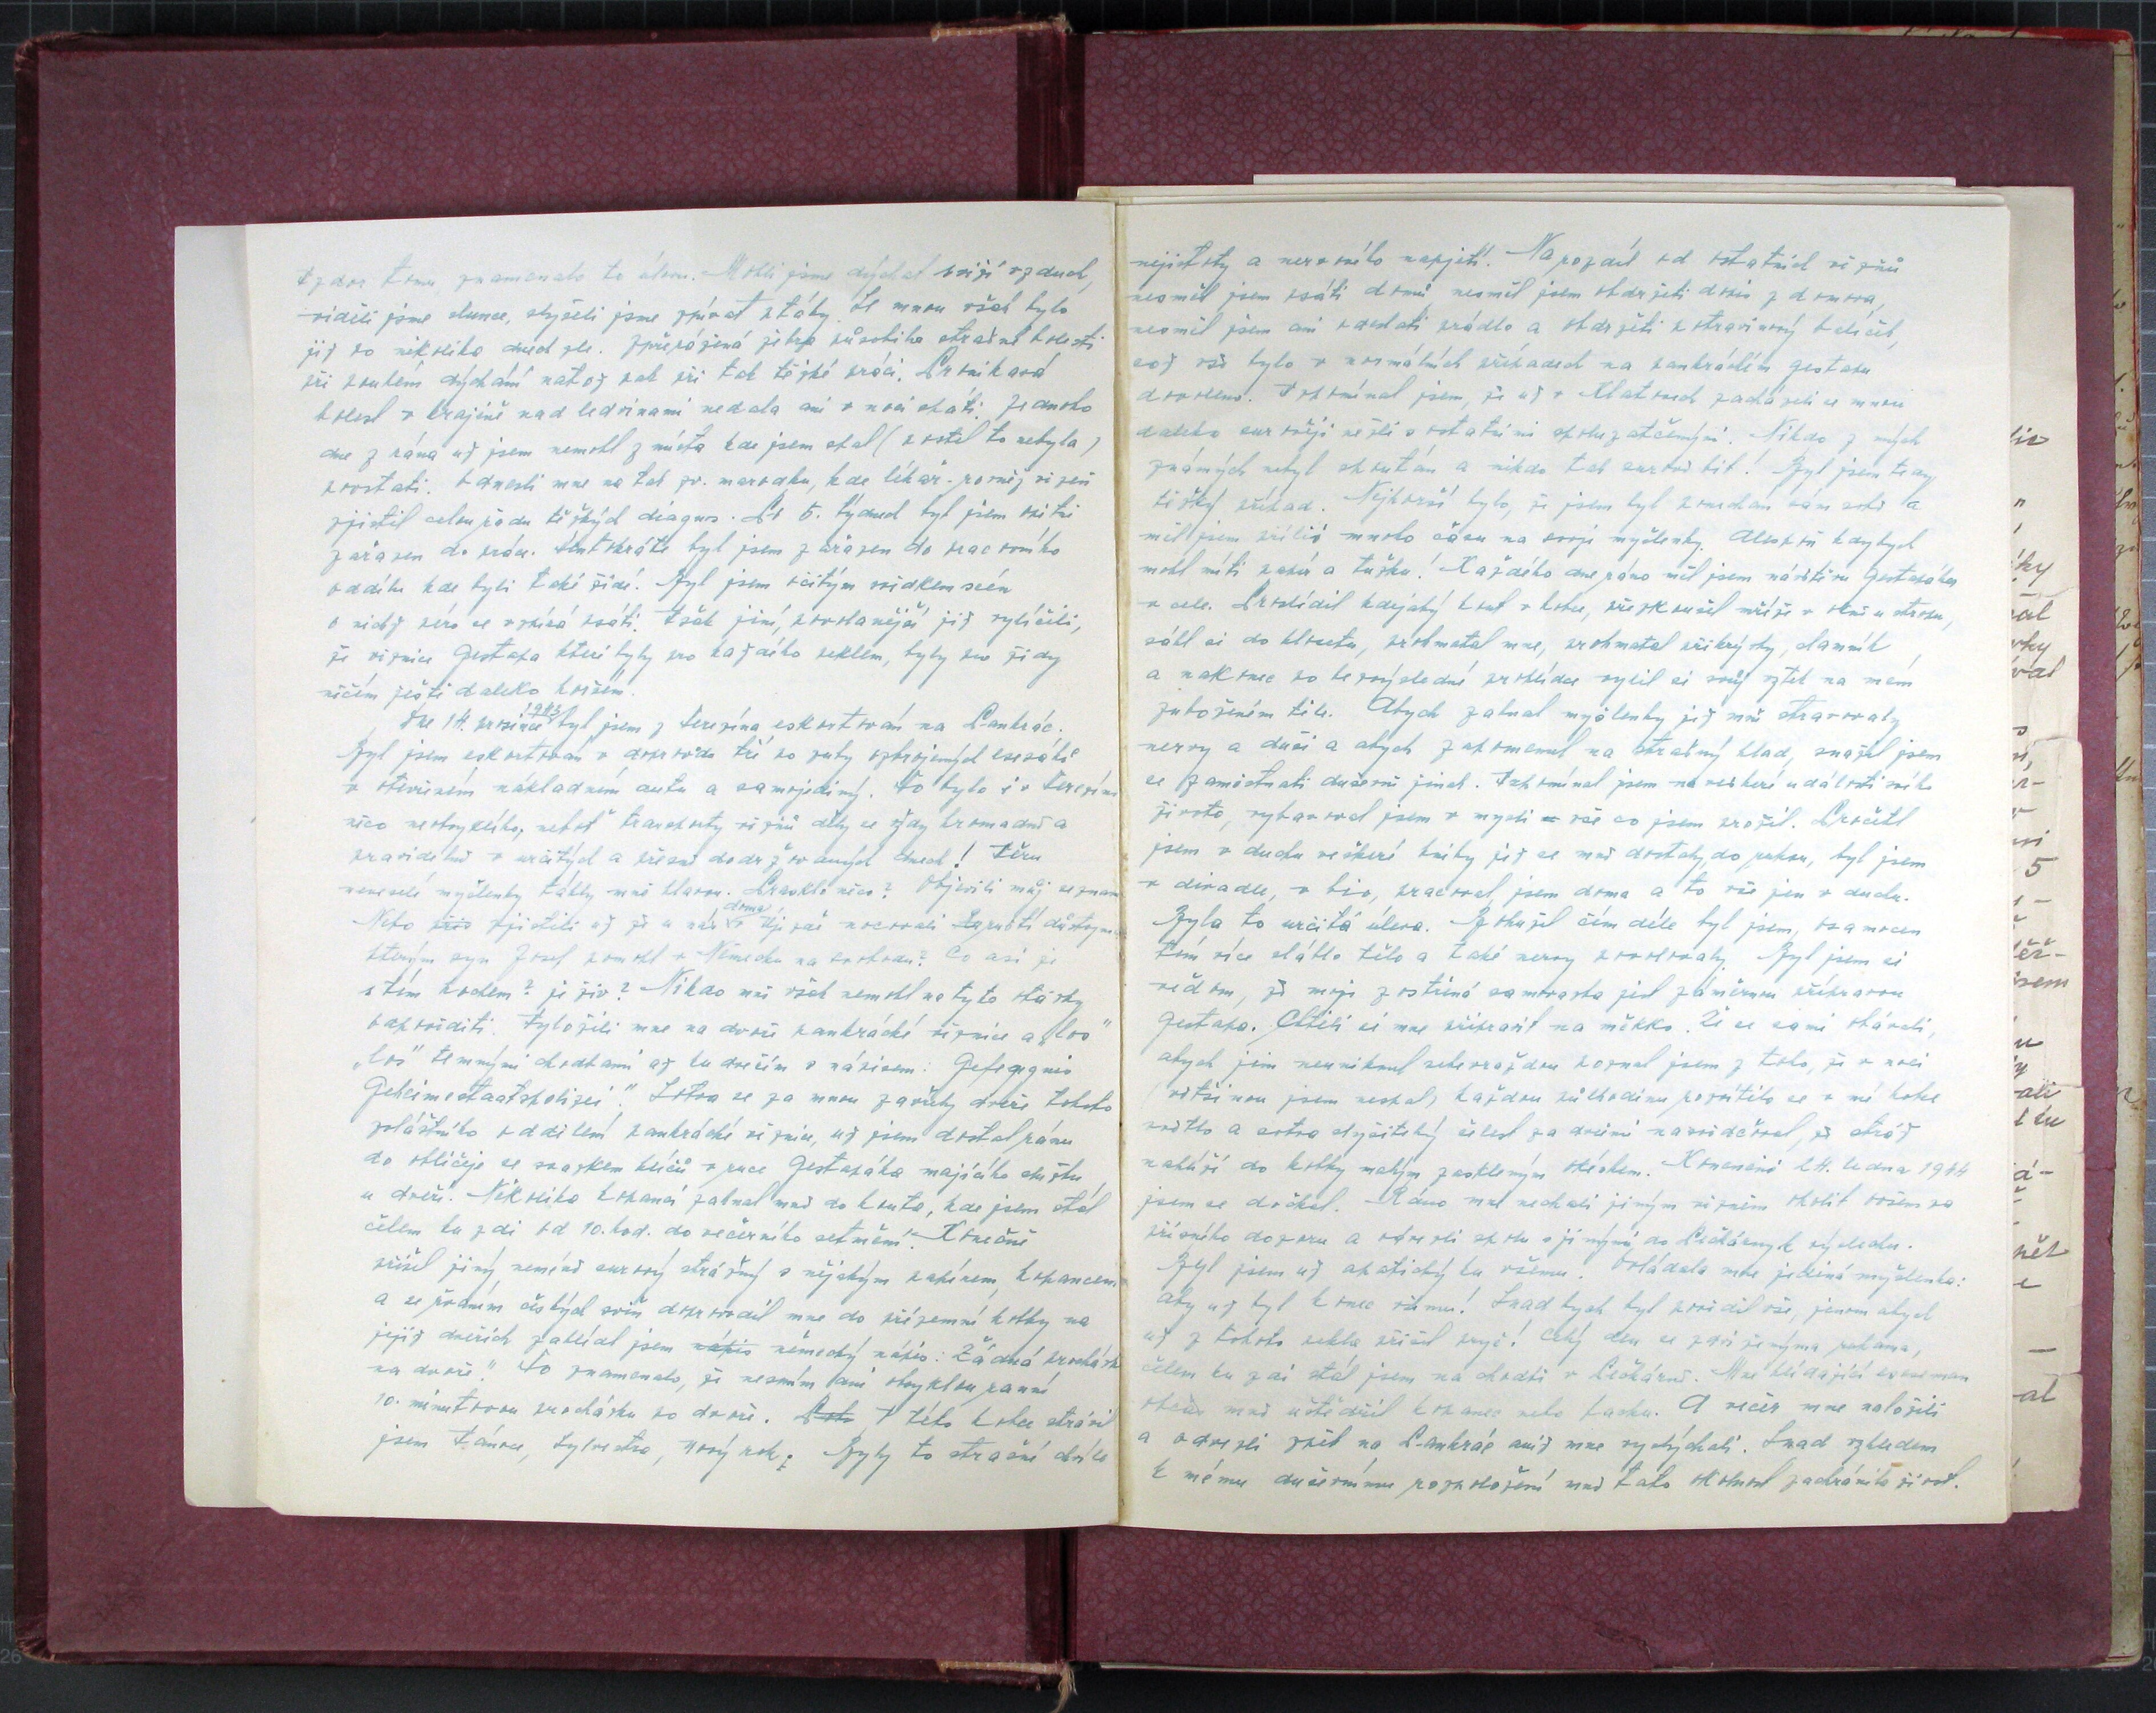 Vzdor tomu znamenalo to úlevu. Mohli jsme dýchat svěží vzduch,
viděli jsme slunce, slyšeli jsme zpívat ptáky. Se mnou však bylo
již po několika dnech zle. Zpřerážená žebra působila strašné bolesti
při pouhém dýchání natož pak při tak těžké práci. Pronikavá
bolest v krajině nad ledvinami nedala ani v noci spáti. Jednoho
dne z rána už jsem nemohl z místa kde jsem spal (postel to nebyla)
povstati. Odnesli mne na tak zv. marodku, kde lékař - rovněž vězeň
zjistil celou řadu těžkých diagnos. Po 5. týdnech byl jsem opětně
zařazen do práce. Tentokráte byl jsem zařazen do pracovního
oddílu kde byli také židé. Byl jsem očitým svědkem scén
o nichž péro se vzpírá psáti. Však jiní, povolanější již vylíčili,
že věznice Gestapa které byly pro každého peklem, byly pro židy
něčím ještě daleko horším.
Dne 14. prosince 1943 byl jsem z Terezína eskortován na Pankrác.
Byl jsem eskortován v doprovodu tří po zuby ozbrojených esesáků
v otevřeném nákladním autu a samojediný. To bylo i v Terezíně
něco neobvyklého, neboť transporty vězňů děly se vždy hromadně a
pravidelně v určitých a přesně dodržovaných dnech! Věru
neveselé myšlenky táhly mně hlavou. Prasklo něco? Objevili můj seznam
Nebo zjistili už že u nás doma v Újezdě nocovali ruští důstojn
kterým syn Josef pomohl v Německu na svobodu? Co asi je
s tím hochem? je živ? Nikdo mně však nemohl na tyto otázky
odpověditi. Vyložili mne na dvoře pankrácké věznice a „los"
„los" temnými chodbami až ku dveřím s nápisem: Gefegnis
Geheimestaatspolizei". Sotva se za mnou zavřely dveře tohoto
zvláštního oddělení pankrácké věznice, už jsem dostal ránu
do obličeje se svazkem klíčů v ruce Gestapáka majícího službu
u dveří. Několika kopanci zahnal mně do kouta, kde jsem stál
čelem ku zdi od 10. hod. do večerního setmění. Konečně
přišel jiný neméně surový strážný s nějakým papírem, kopancem
a se řvaním českých sviň doprovodil mne do přízemní kobky na
jejíž dveřích zahlédl jsem nápis německý nápis: Žádná procházka
na dvoře". To znamenalo, že nesmím ani obvyklou ranní
10. minutovou procházku po dvoře. V této kobce strávil
jsem Vánoce, Sylvestra, Nový rok. Byly to strašné chvíle
nejistoty a nervového napjetí. Na rozdíl od ostatních vězňů
nesměl jsem psáti domů, nesměl jsem obdržeti dopis z domova,
nesměl jsem ani odeslati prádlo a obdržeti potravinový balíček,
což vše bylo v normálních případech na pankráckém gestapu
dovoleno. Vzpomínal jsem, že už v Klatovech zacházeli se mnou
daleko surověji nežli s ostatními spoluzatčenými. Nikdo z mých
známých nebyl spoután a nikdo tak surově bit! Byl jsem tedy
těžký případ. Nejhorší bylo, že jsem byl ponechán sám sobě a
měl jsem příliš mnoho času na svoje myšlenky. Alespoň kdybych
mohl míti papír a tužku! Každého dne ráno měl jsem návštěvu Gestapáka
v cele. Prolédil kdejaký kout v kobce, přezkoušel mříže v okně u stropu,
sáhl si do klosetu, prohmatal mne, prohmatal přikrývky, slamník,
a nakonec po bezvýsledné prohlídce vylil si svůj vztek na mém
zuboženém těle. Abych zahnal myšlenky jež mně stravovaly
nervy a duši a abych zapomenul na strašný hlad, snažil jsem
se zaměstnati duševně jinak. Vzpomínal jsem na veškeré události mého
života, vybavoval jsem v mysli vše co jsem prožil. Pročetl
jsem v duchu veškeré knihy jež se mně dostaly do rukou, byl jsem
v divadle, v bio, pracoval jsem doma a to vše jen v duchu.
Byla to určitá úleva. Bohužel čím déle byl jsem osamocen
tím více sláblo tělo a také nervy povolovaly. Byl jsem si
vědom, že moje zostřená samovazba jest záměrnou přípravou
Gestapa. Chtěli si mne připravit na měkko. Že se sami obávali,
abych jim neuniknul sebevraždou poznal jsem z toho, že v noci
(většinou jsem nespal) každou půlhodinu rozsvítilo se v mé kobce
světlo a sotva slyšitelný šelest za dveřmi nasvědčoval, že stráž
nahlíží do kobky malým zaskleným okénkem. Konečně 24. ledna 1944
jsem se dočkal. Ráno mne nechali jiným vězněm oholit ovšem za
přísného dozoru a odvezli spolu s jinými do Pečkárny k výslechu.
Byl jsem už apatický ku všemu. Ovládala mne jediná myšlenka:
aby už byl konec všemu! Snad bych byl pověděl vše, jenom abych
už z tohoto pekla přišel pryč! Celý den se zdviženýma rukama,
čelem ku zdi stál jsem na chodbě v Pečkárně. Mne hlídající esesman
občas mně uštědřil kopanec nebo facku. A večer mne naložili
a odvezli zpět na Pankrác aniž mne vyslýchali. Snad vzhledem
k mému duševnímu rozpoložení mně tato okolnost zachránila život.